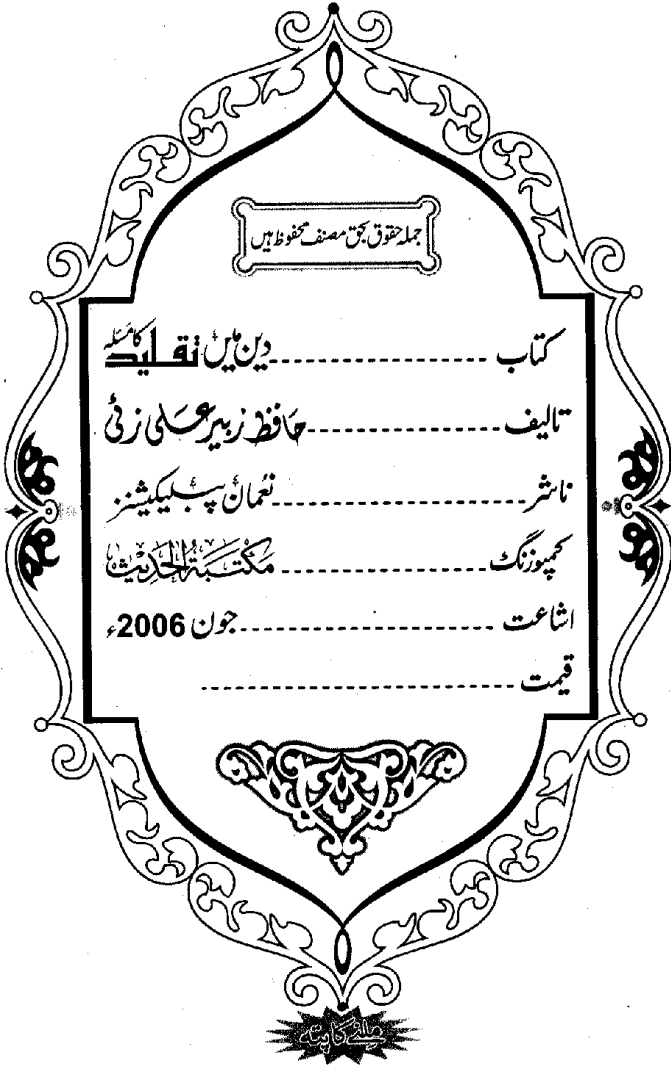 جملہ حقوق بحق مصنف محفوظ ہیں
کتاب -------------------- دین میں تقلید کا مسئلہ
تالیف -------------------- حافظ زبیر علی زئی
ناشر -------------------- نعمان پبلیکیشنز
کمپوزنگ -------------------- مکتبۃ الحدیث
اشاعت -------------------- جون 2006ء
قیمت --------------------
ملنے کا پتہ